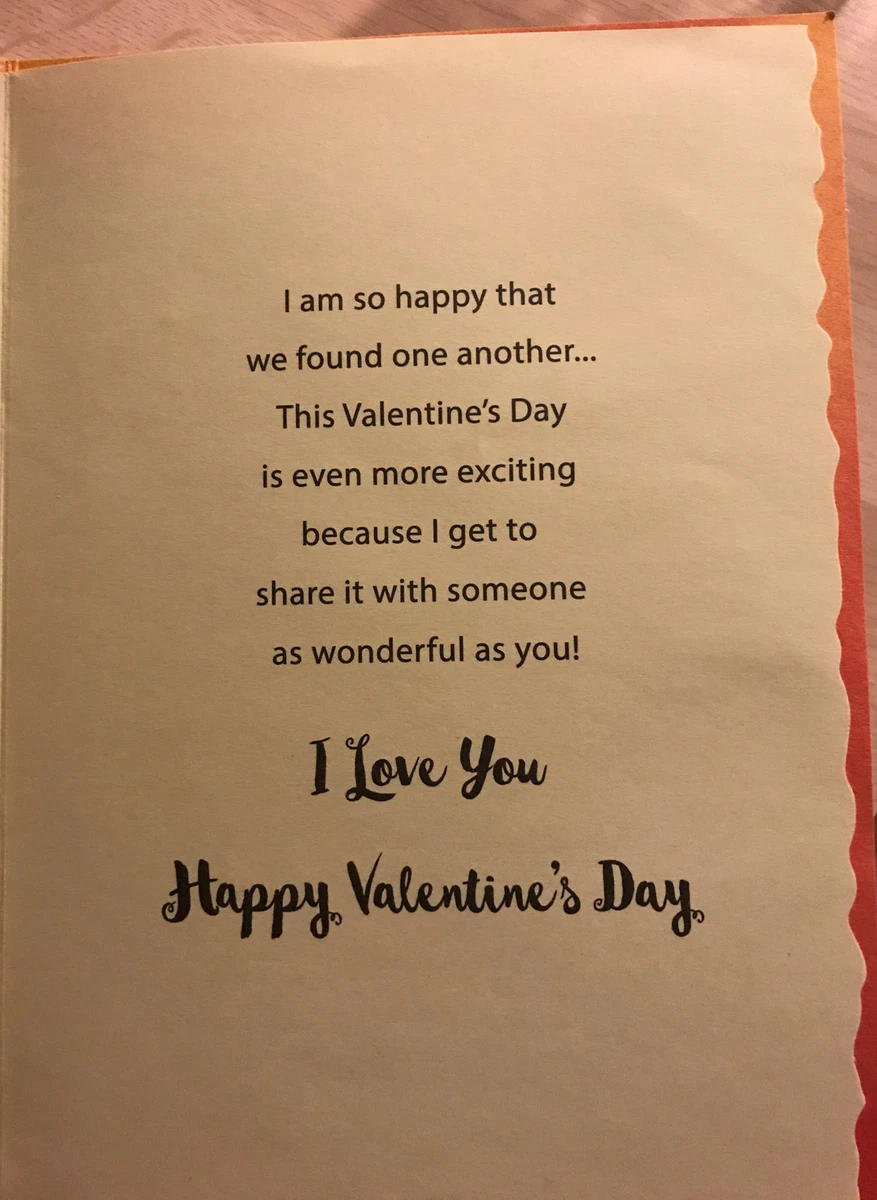 I am so happy that
we found one another...
This Valentine's Day
is even more exciting
because I get to
share it with someone
as wonderful as you!
I Love You
Happy Valentine's Day